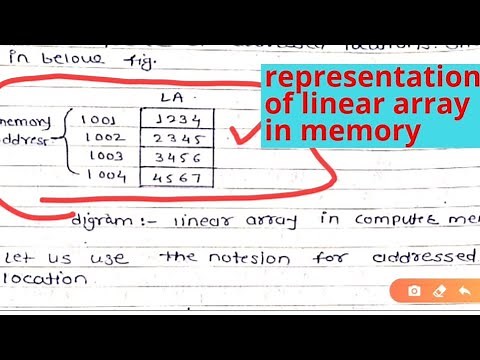 in below fig.
representation
of linear array
in memory
LA
memory
address
1001 1234
1002 2345
1003 3456
1004 4567
digram :- linear array in compute me
Let us use the notesion for addressed
location